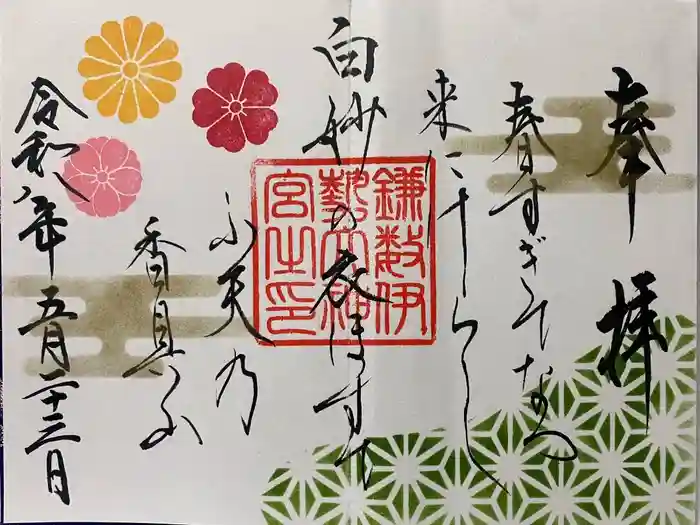 奉拝
春すぎてなつ
来にけらし
白妙の衣ほすて
ふ天乃
香具山
令和八年五月二十三日
鎌数伊
勢大神
宮之印